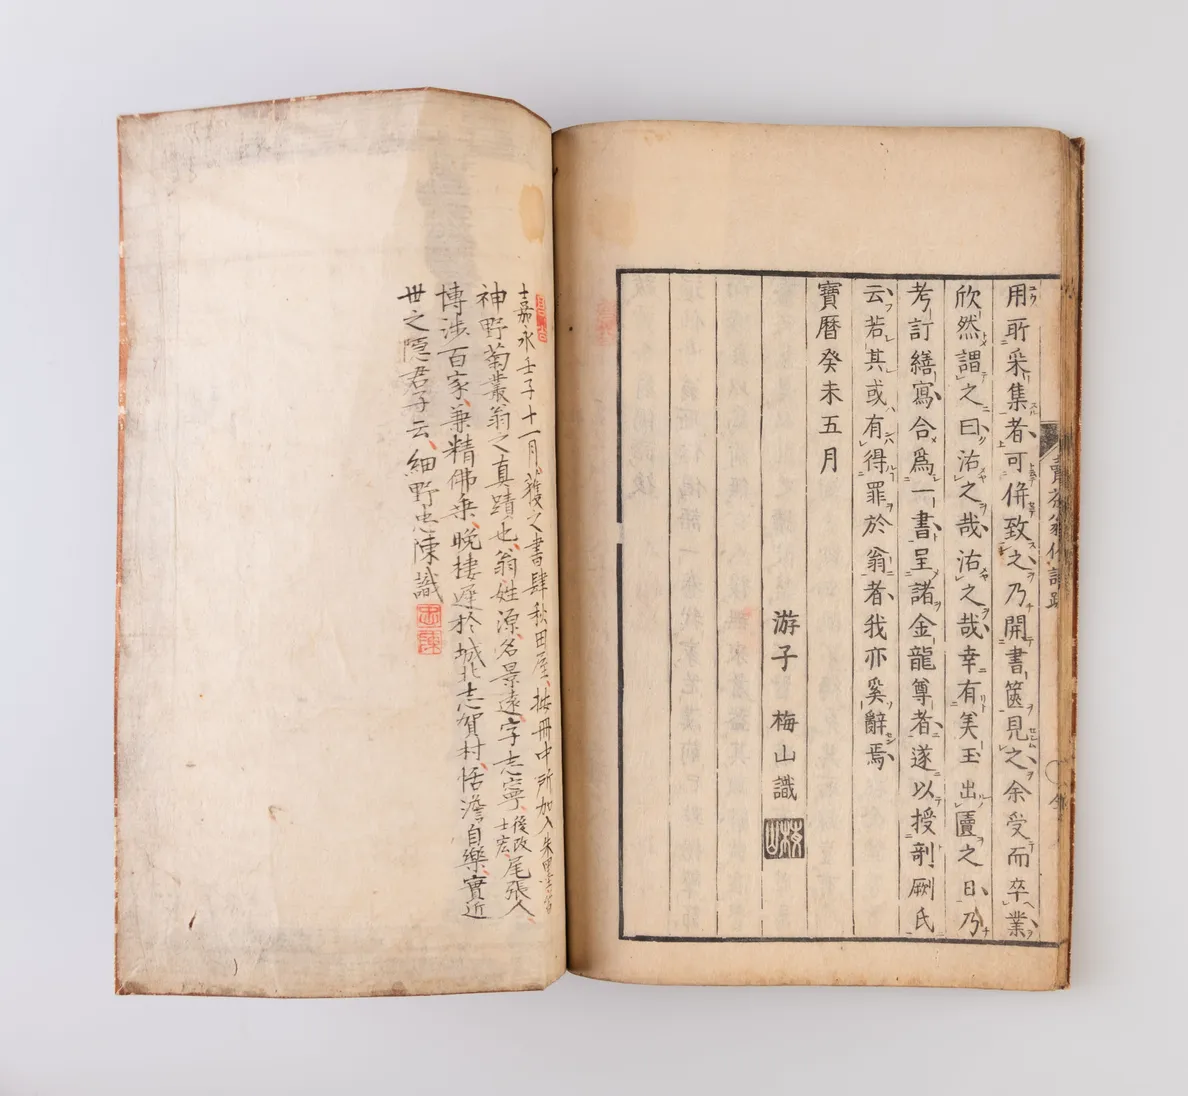 用所采集者可併致之乃開書篋見之余受而卒業
欣然謂之曰沽之哉沽之哉幸有美玉出匵之日乃
考訂繕寫合為一書呈諸金龍尊者遂以授剞劂氏
云若其或有得罪於翁者我亦奚辭焉
寶曆癸未五月
游子 梅山識
梅山
嘉永壬子十一月獲之書肆秋田屋按冊中所加入朱墨書皆
神野菊叢翁之真蹟也翁姓源名景遠字志寧後改士宏尾張人
博涉百家兼精佛乘晚棲遲於城北志賀村恬澹自樂實近
世之隱君子云細野忠陳識
忠陳